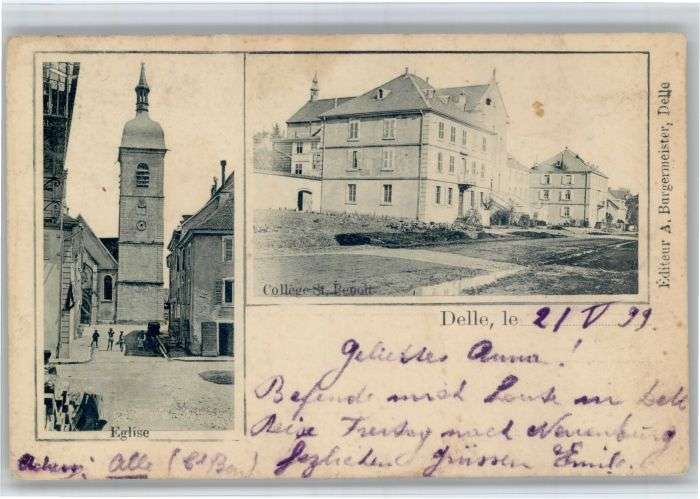 Collège St. Benoit
Editeur A. Burgermeister, Delle
Delle, le 21/V 99.
Geliebtes Anna!
Befinde mich heute in Delle
Reise Freitag nach Neuenburg
Herzlichen Grüssen Emile.
Eglise
Alle (Ct Bern)